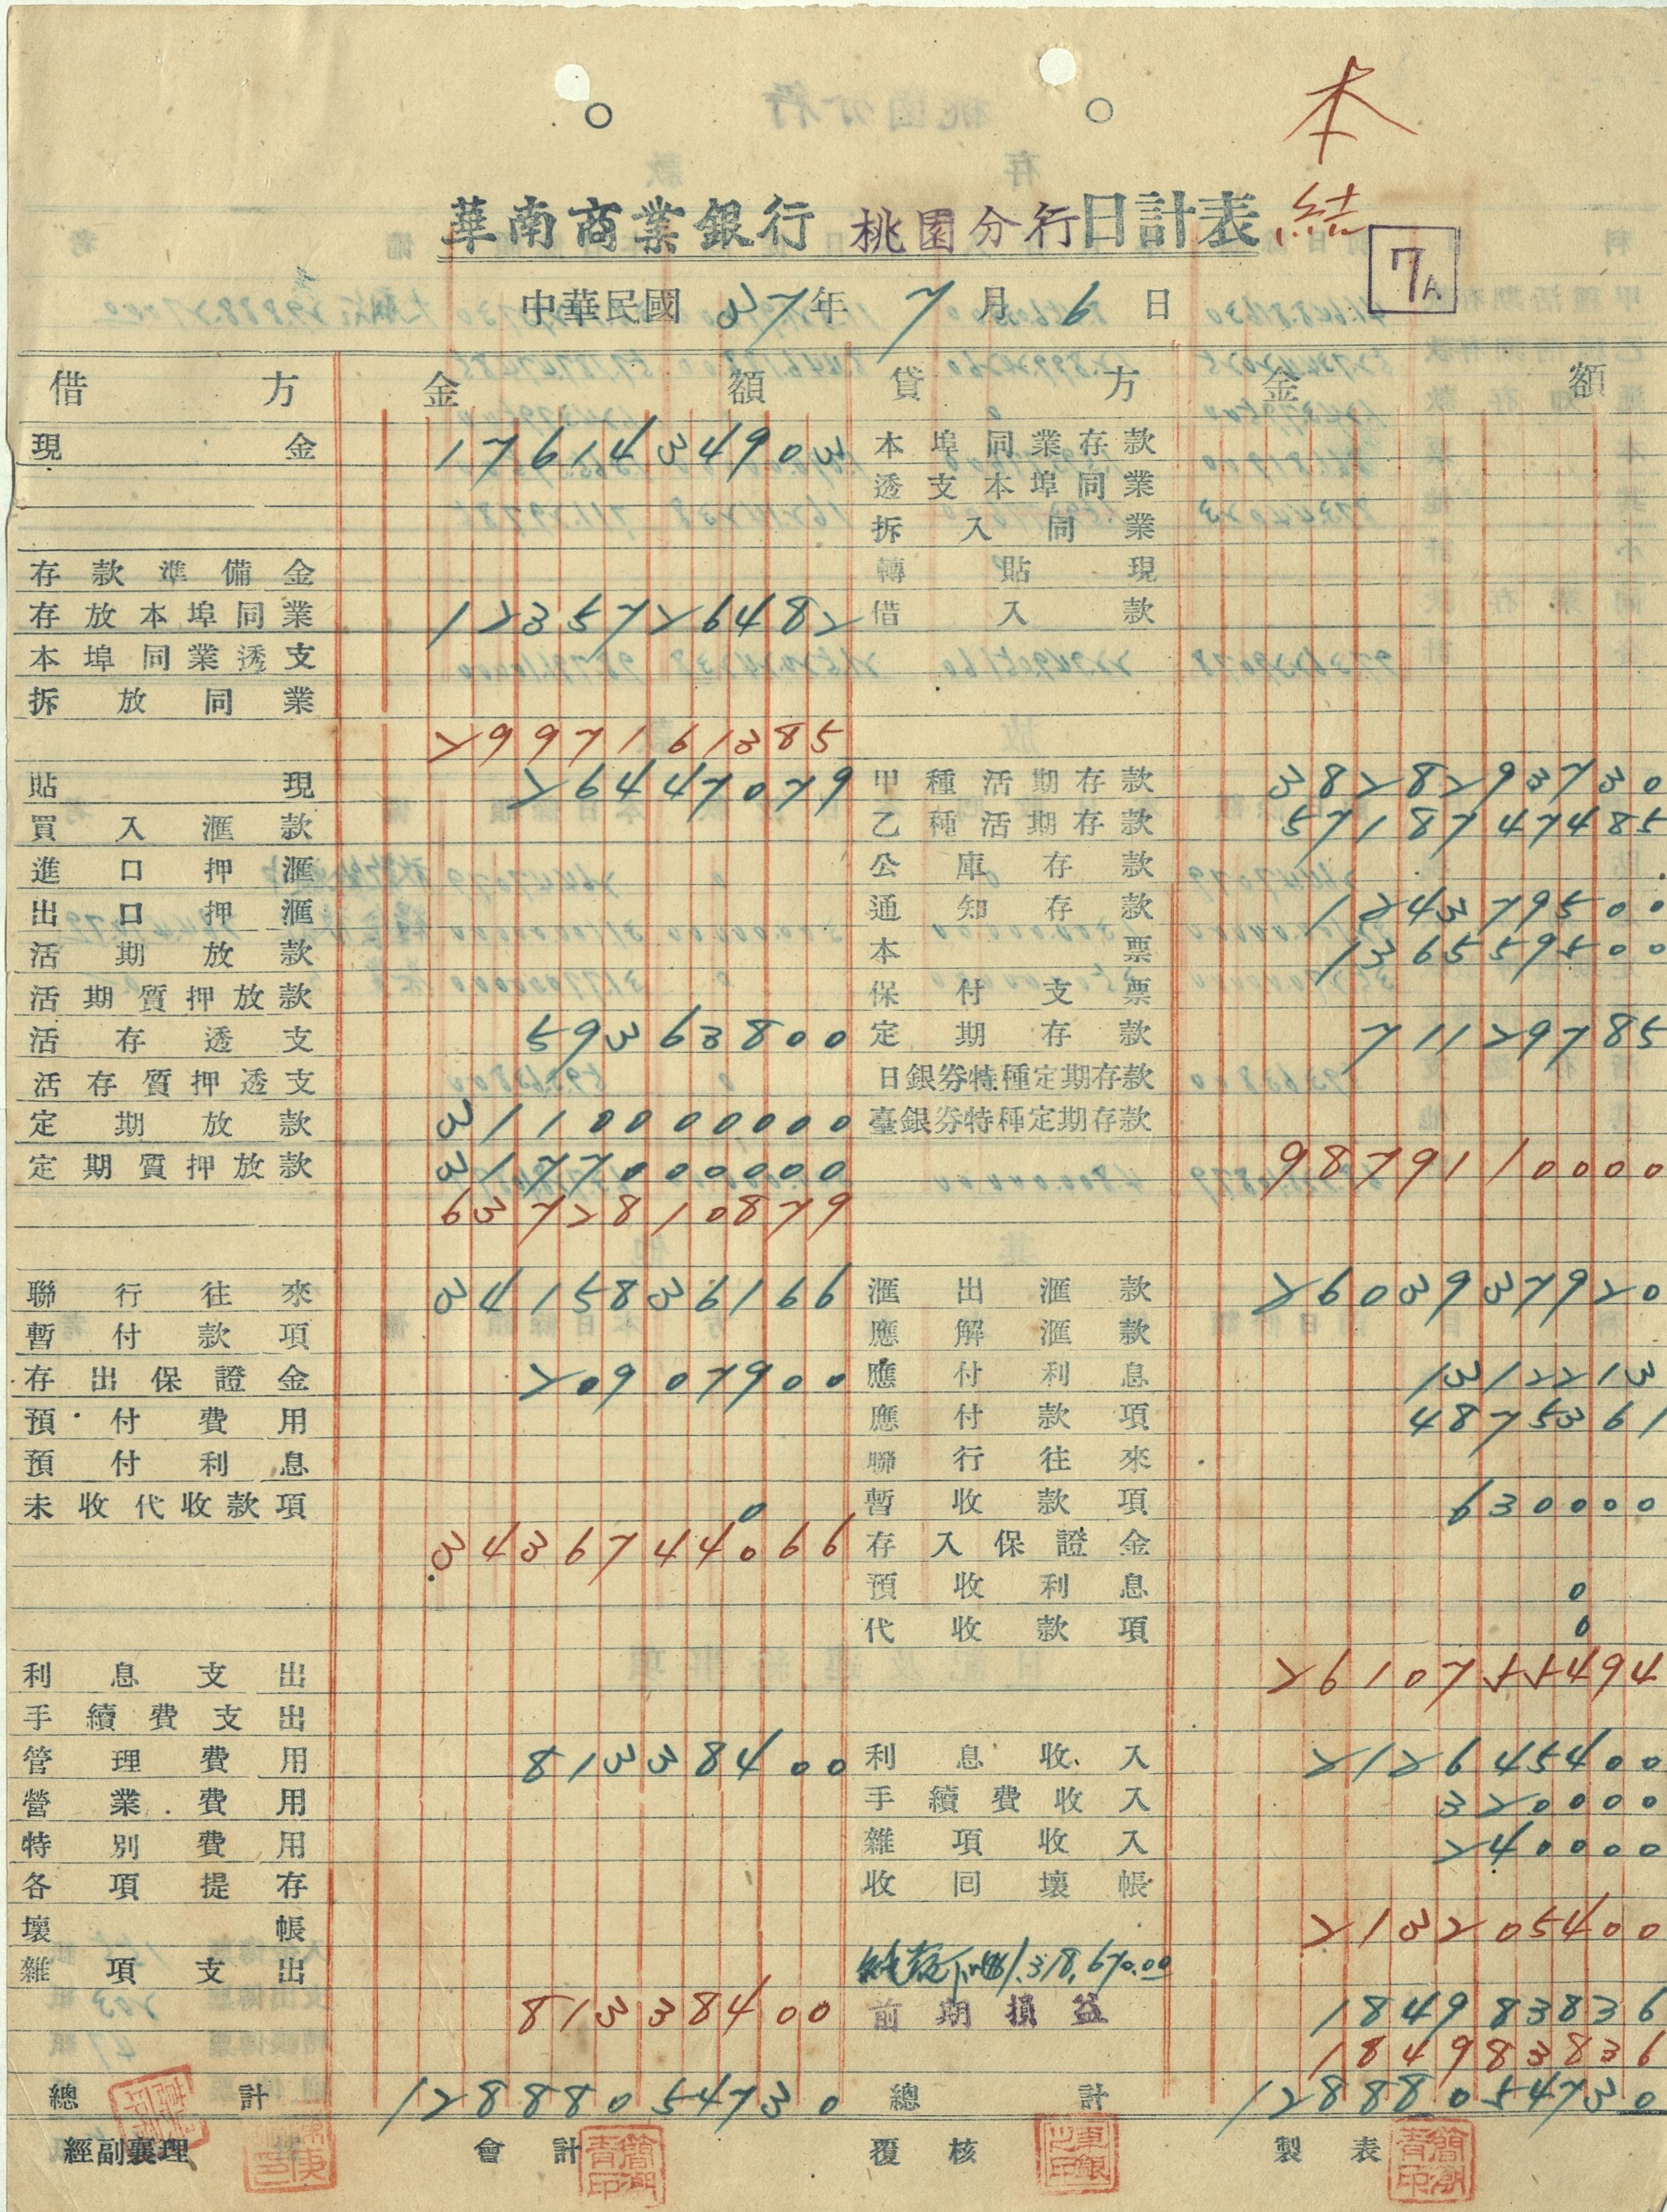 本
結
華南商業銀行 桃園分行 日計表
7A
中華民國 37 年 7 月 6 日
借方 金額 貸方 金額
現金 1761434903 本埠同業存款
透支本埠同業
拆入同業
存款準備金 轉貼現
存放本埠同業 1235726482 借入款
本埠同業透支
拆放同業
2997161385
貼現 26447079 甲種活期存款 3828293730
買入滙款 乙種活期存款 5718747485
進口押滙 公庫存款
出口押滙 通知存款 124379500
活期放款 本票 136559500
活期質押放款 保付支票
活存透支 59363800 定期存款 71129785
活存質押透支 日銀券特種定期存款
定期放款 3110000000 臺銀券特種定期存款
定期質押放款 3177000000 9879110000
6372810879
聯行往來 3415836166 滙出滙款 2603937920
暫付款項 應解滙款
存出保證金 20907900 應付利息 1312213
預付費用 應付款項 4875361
預付利息 聯行往來
未收代收款項 0 暫收款項 630000
3436744066 存入保證金
預收利息 0
代收款項 0
利息支出 2610755494
手續費支出
管理費用 81338400 利息收入 212645400
營業費用 手續費收入 320000
特別費用 雜項收入 240000
各項提存 收回壞帳
壞帳 213205400
雜項支出 1,318,670.00
81338400 前期損益 184983836
184983836
總計 12888054730 總計 12888054730
經副襄理 會計 覆核 製表